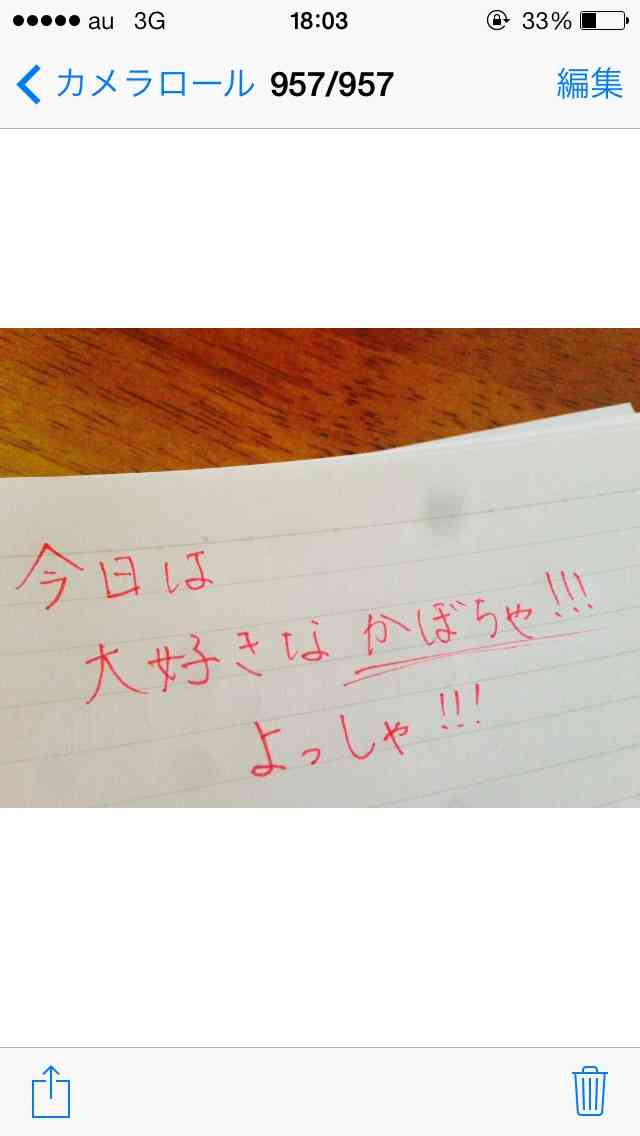 ●●●●● au 3G 18:03 33%
カメラロール 957/957 編集
今日は
大好きなかぼちゃ!!!
よっしゃ!!!